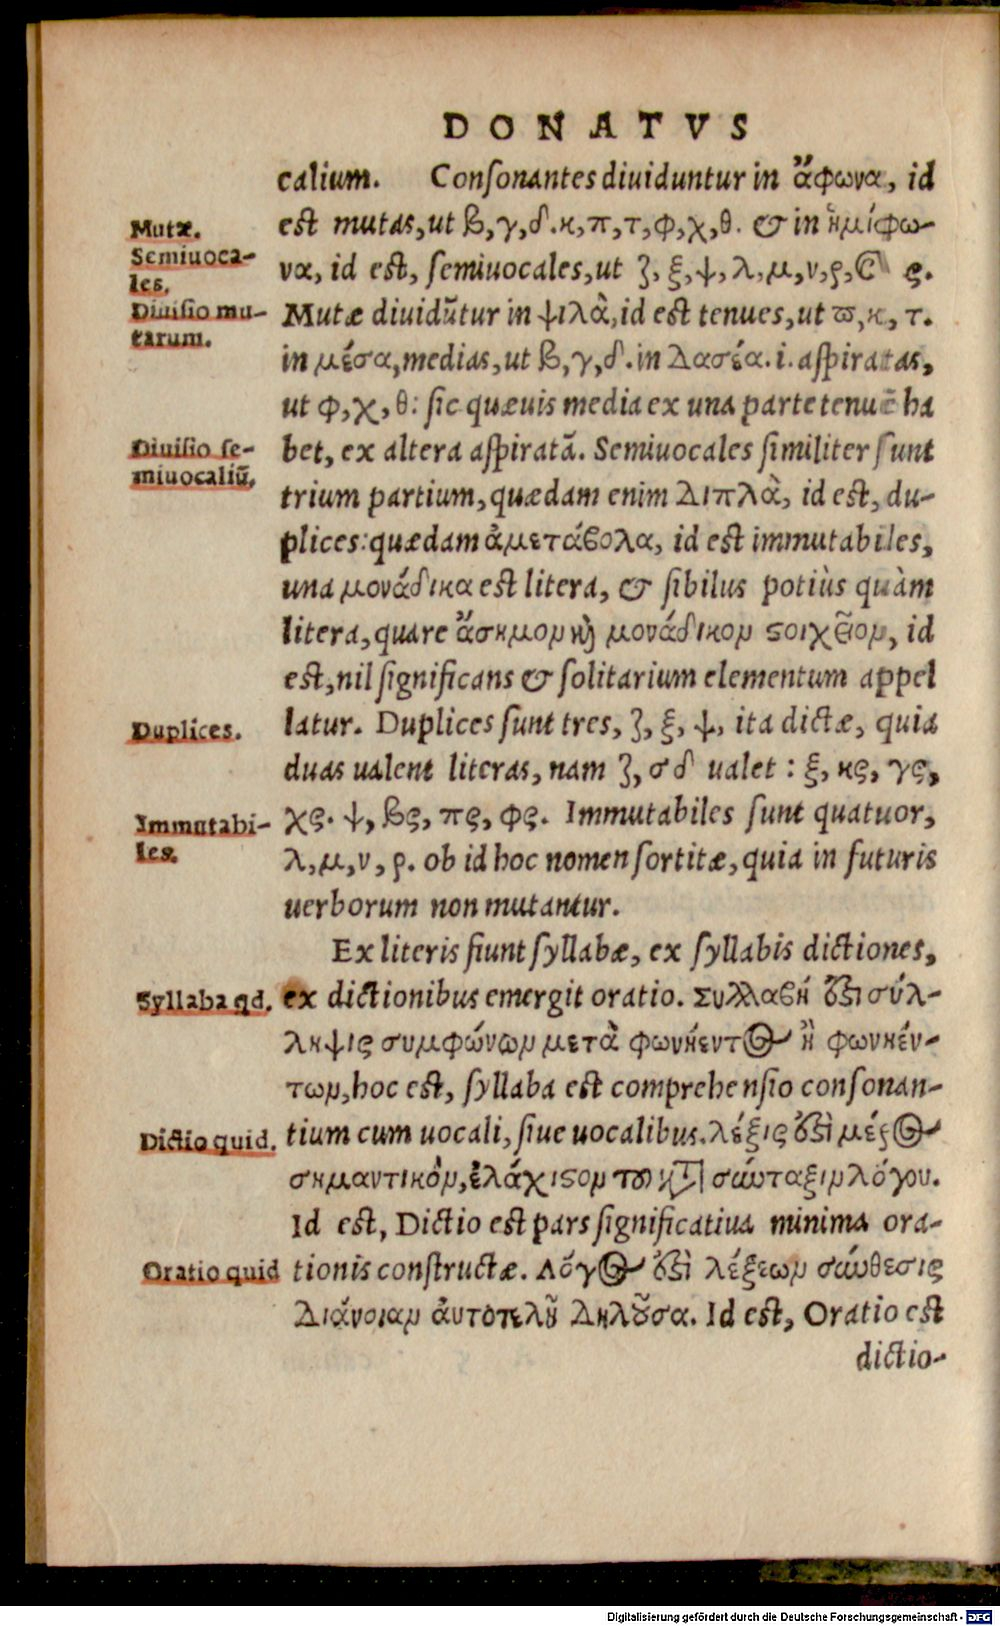 DONATVS
calium. Conſonantes diuiduntur in ἄφωνα, id
Mutæ.
est mutas, ut β, γ, δ. κ, π, τ, φ, χ, θ. & in ἡμίφω-
Semiuoca-
les.
να, id est, ſemiuocales, ut ζ, ξ, ψ, λ, μ, ν, ρ, σ ς.
Diuiſio mu-
tarum.
Mutæ diuidũtur in ψιλὰ, id est tenues, ut ϖ, κ, τ.
in μέσα, medias, ut β, γ, δ. in Δασέα. i. aſpiratas,
ut φ, χ, θ: ſic quæuis media ex una parte tenuẽ ha
Diuiſio ſe-
miuocaliũ.
bet, ex altera aſpiratã. Semiuocales ſimiliter ſunt
trium partium, quædam enim Διπλὰ, id est, du-
plices: quædam ἀμετάβολα, id est immutabiles,
una μονάδικα est litera, & ſibilus potiùs quàm
litera, quare ἄσημον καὶ μονάδικον ϛοιχεῖον, id
est, nil ſignificans & ſolitarium elementum appel
Duplices.
latur. Duplices ſunt tres, ζ, ξ, ψ, ita dictæ, quia
duas ualent literas, nam ζ, σδ ualet : ξ, κς, γς,
Immutabi-
les.
χς. ψ, βς, πς, φς. Immutabiles ſunt quatuor,
λ, μ, ν, ρ. ob id hoc nomen ſortitæ, quia in futuris
uerborum non mutantur.
Ex literis fiunt ſyllabæ, ex ſyllabis dictiones,
Syllaba qd.
ex dictionibus emergit oratio. Συλλαβή ὅϐι σύλ-
ληψις συμφώνων μετὰ φωνήεντος ἢ φωνηέν-
των, hoc est, ſyllaba est comprehenſio conſonan-
Dictio quid.
tium cum uocali, ſiue uocalibus. λέξις ὅϐὶ μέρος
σημαντικὸν, ἐλάχιϛον τοῦ κατὰ σύνταξιν λόγου.
Id est, Dictio est pars ſignificatiua minima ora-
Oratio quid
tionis conſtructæ. Λόγος ὅϐὶ λέξεων σύνθεσις
Διάνοιαν ἀυτοτελῆ Δηλοῦσα. Id est, Oratio est
dictio-
Digitalisierung gefördert durch die Deutsche Forschungsgemeinschaft - DFG